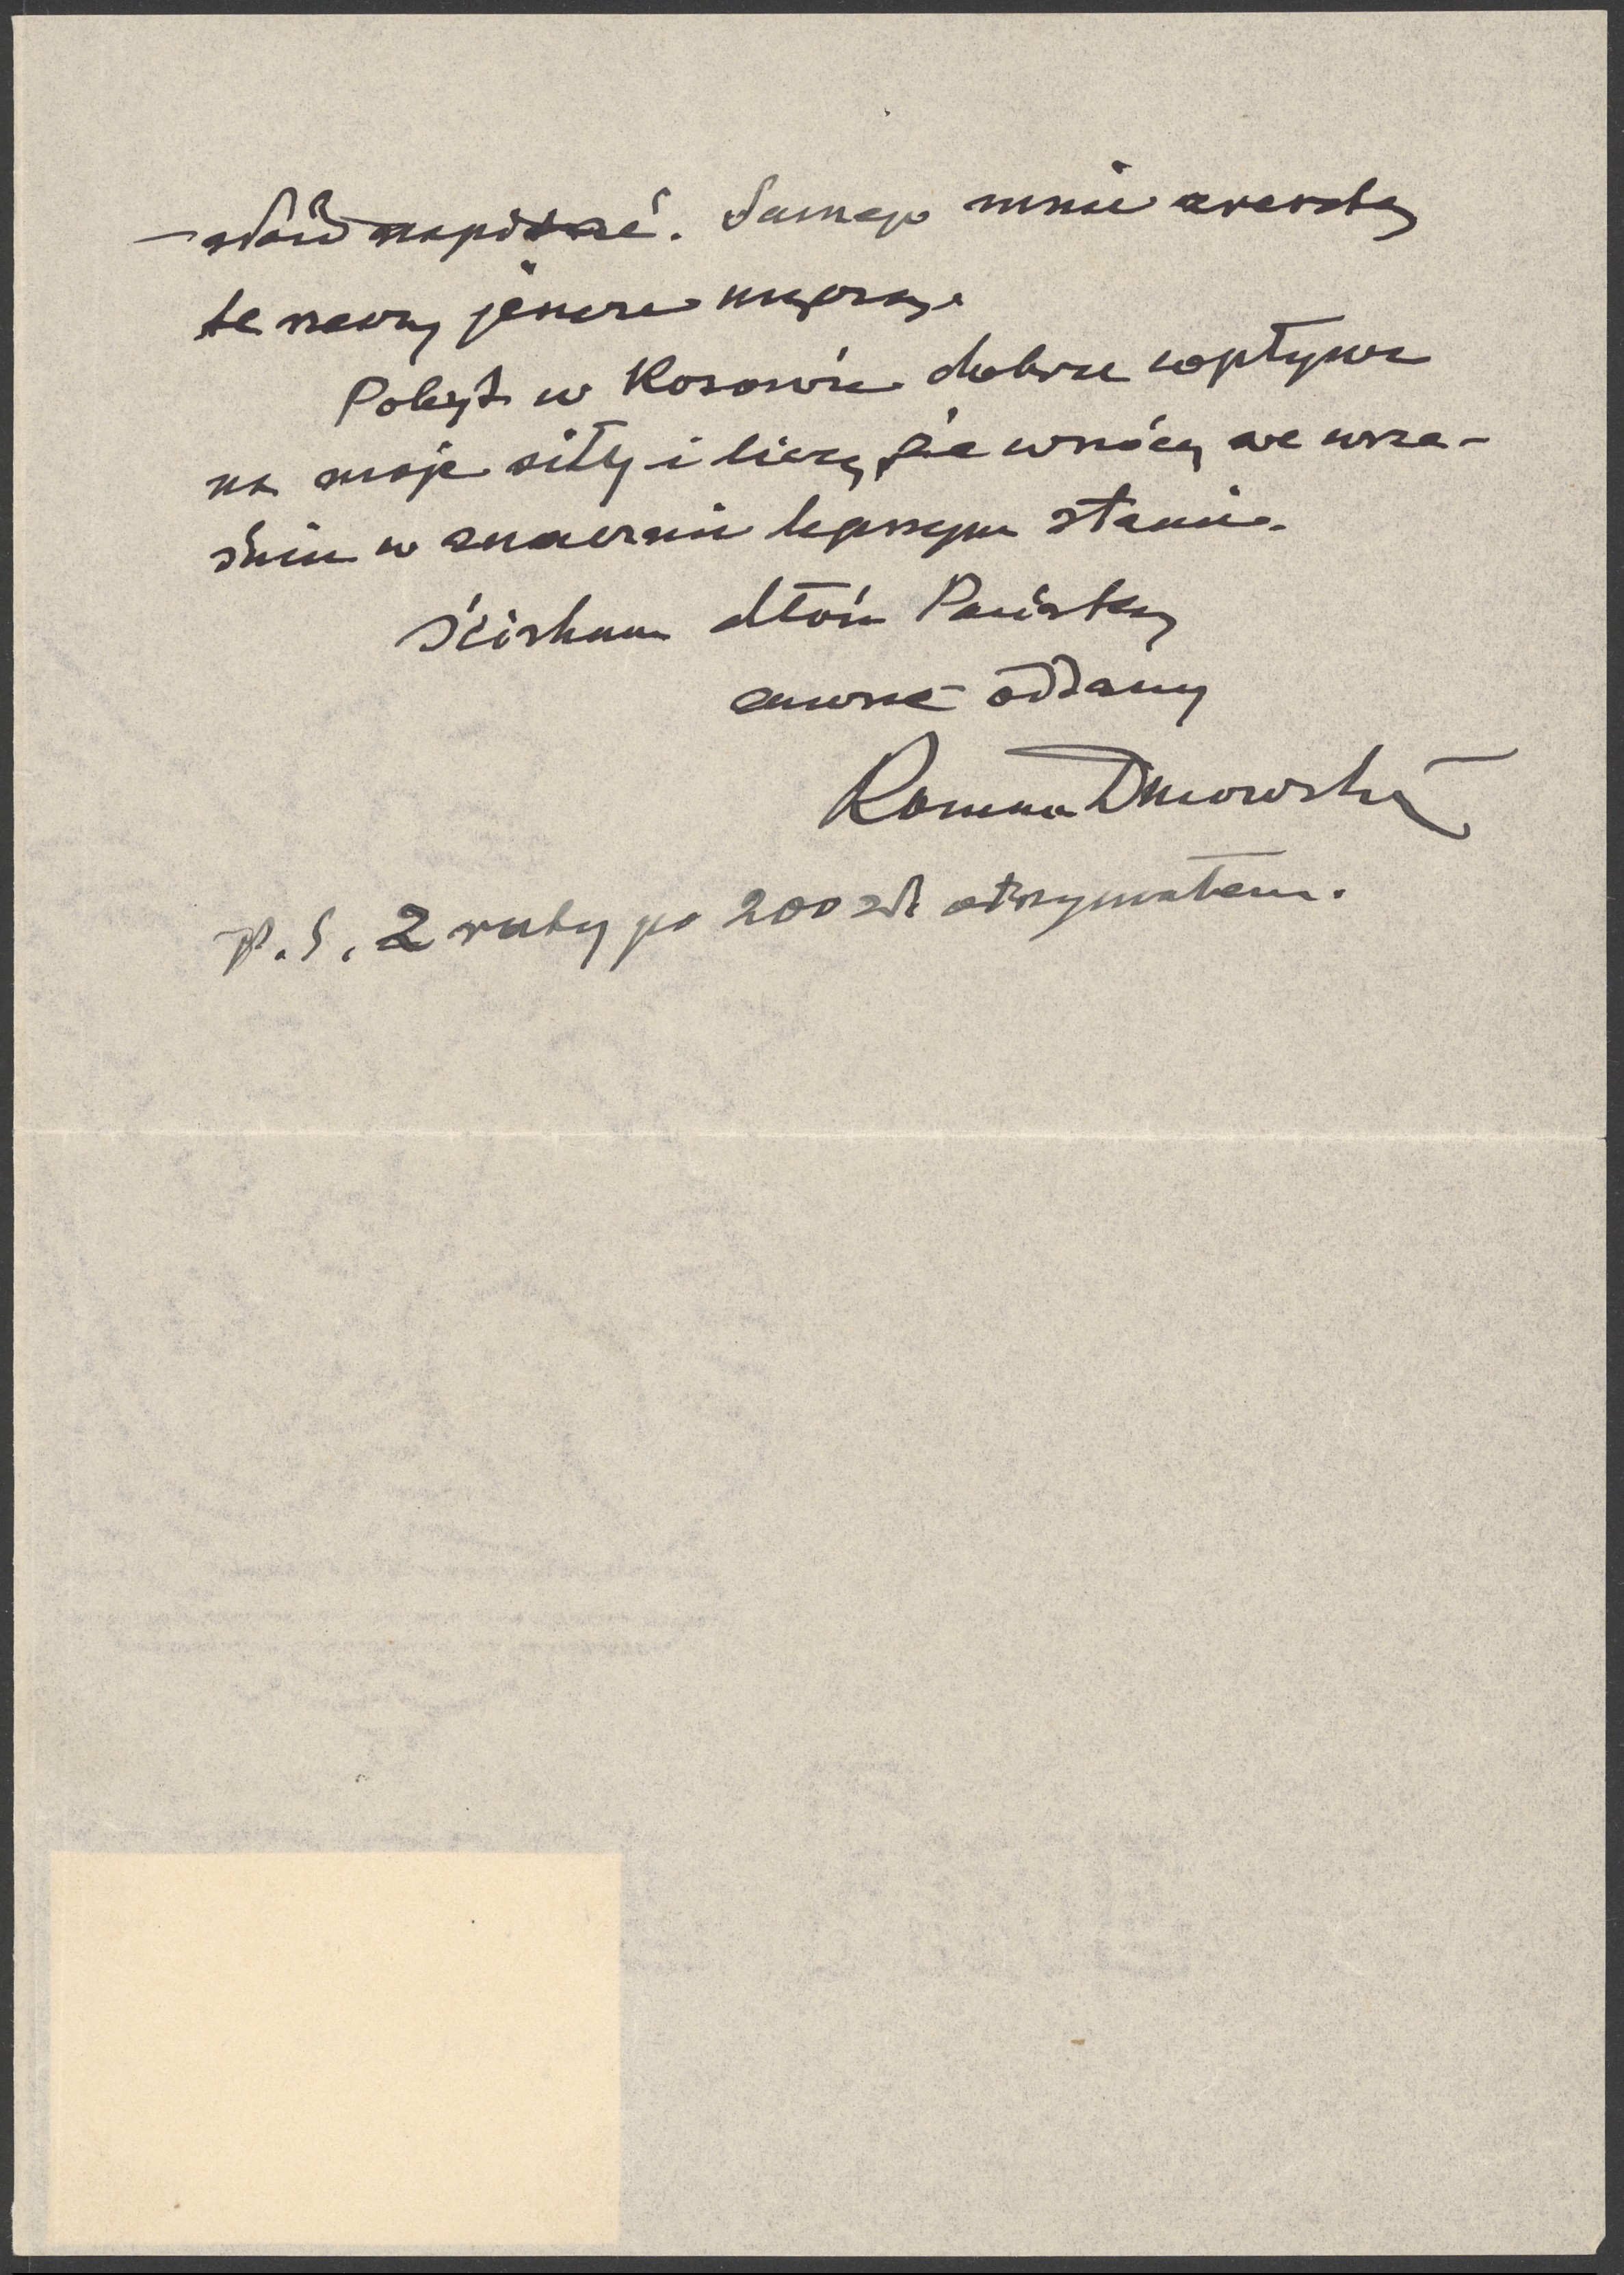 słów napisać. Samego mnie zresztą
te rzeczy jeszcze męczą.
Pobyt w Kosowie dobrze wpływa
na moje siły i liczę, że wrócę we wrze-
śniu w znacznie lepszym stanie.
Ściskam dłoń Pańską
zawsze oddany
Roman Dmowski
P.S. 2 raty po 200 zł. otrzymałem.